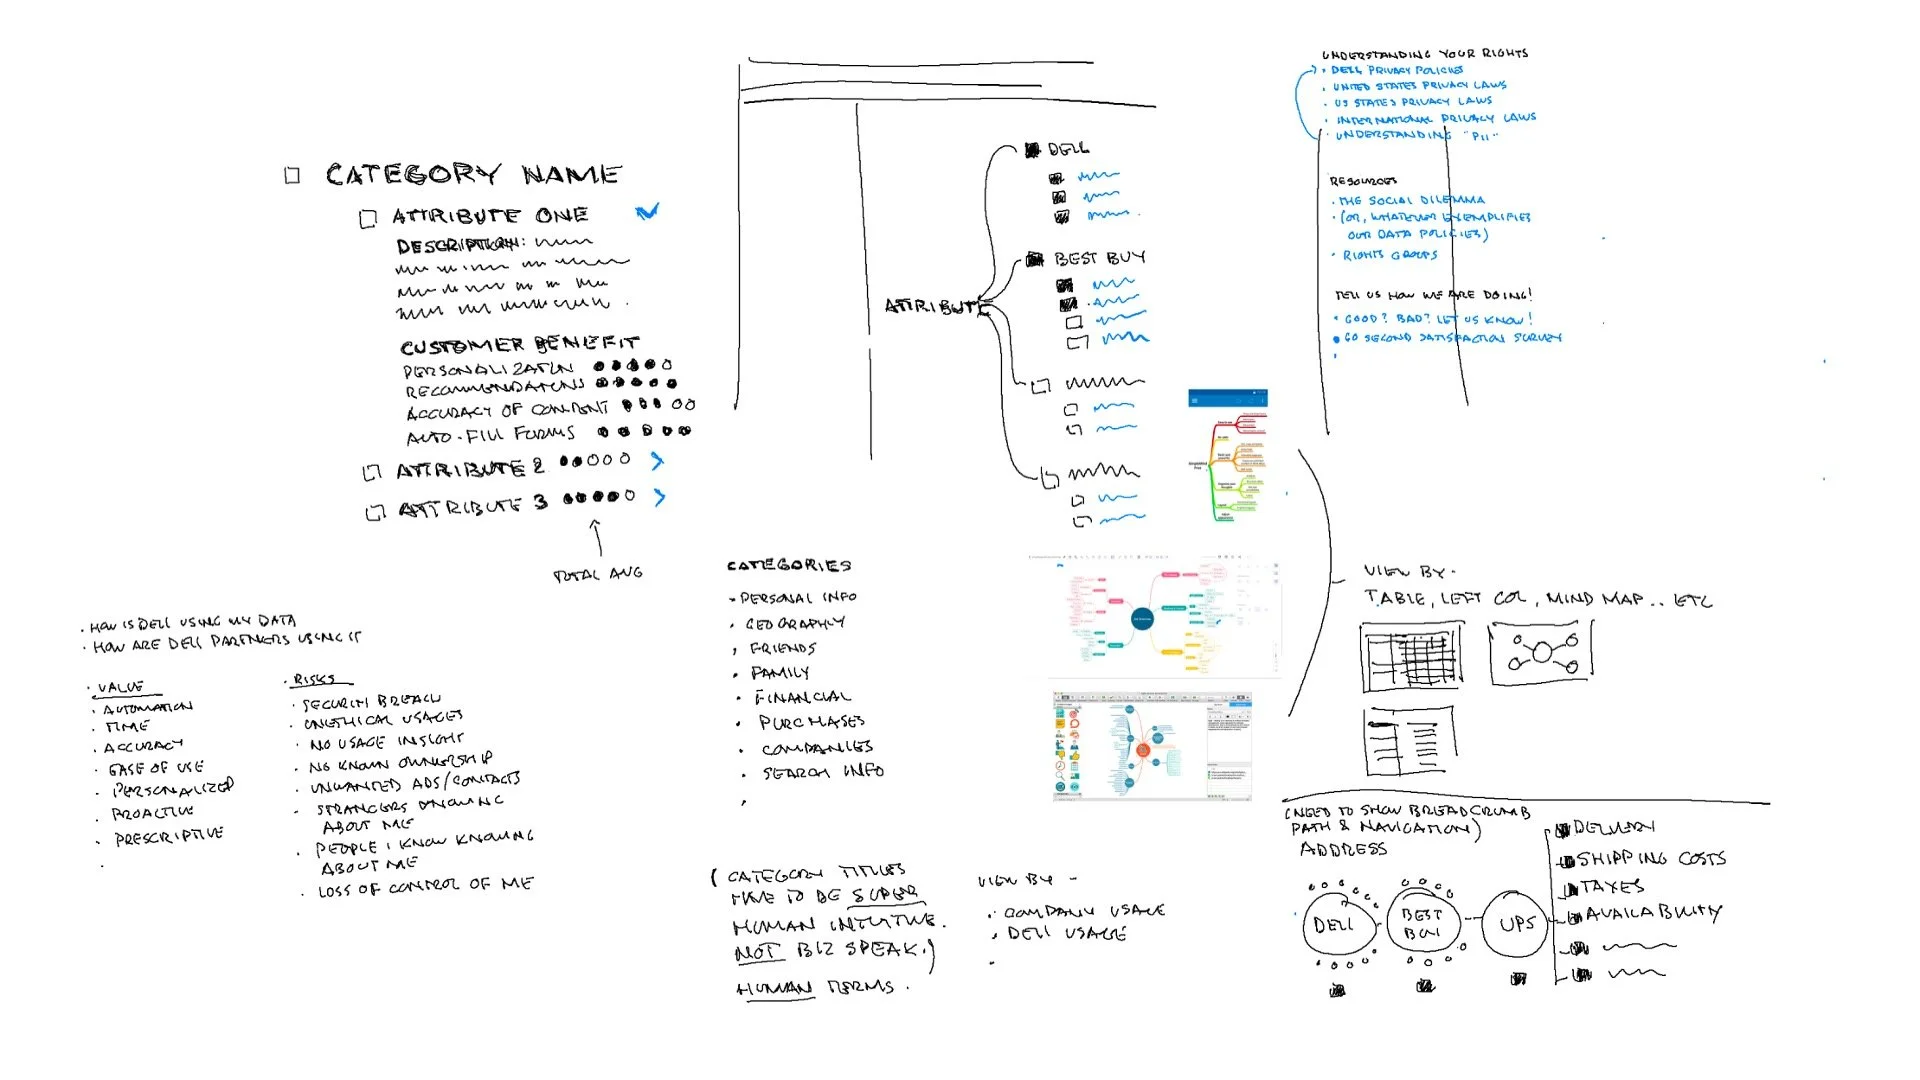 CATEGORY NAME
ATTRIBUTE ONE
DESCRIPTION:
CUSTOMER BENEFIT
PERSONALIZATIN
RECOMMENDATIONS
ACCURACY OF CONTENT
AUTO-FILL FORMS
ATTRIBUTE 2
ATTRIBUTE 3
TOTAL AVG
• HOW IS DELL USING MY DATA
• HOW ARE DELL PARTNERS USING IT
• VALUE
• AUTOMATION
• TIME
• ACCURACY
• EASE OF USE
• PERSONALIZED
• PROACTIVE
• PRESCRIPTIVE
• RISKS
• SECURITY BREACH
• UNETHICAL USAGES
• NO USAGE INSIGHT
• NO KNOWN OWNERSHIP
• UNWANTED ADS/CONTACTS
• STRANGERS KNOWING
ABOUT ME
• PEOPLE I KNOW KNOWING
ABOUT ME
• LOSS OF CONTROL OF ME
ATTRIBUTE
DELL
BEST BUY
CATEGORIES
• PERSONAL INFO
• GEOGRAPHY
• FRIENDS
• FAMILY
• FINANCIAL
• PURCHASES
• COMPANIES
• SEARCH INFO
(CATEGORY TITLES
HAVE TO BE SUPER
HUMAN INTUITIVE.
NOT BIZ SPEAK.)
HUMAN TERMS.
VIEW BY -
• COMPANY USAGE
• DELL USAGE
UNDERSTANDING YOUR RIGHTS
• DELL PRIVACY POLICIES
• UNITED STATES PRIVACY LAWS
• US STATES PRIVACY LAWS
• INTERNATIONAL PRIVACY LAWS
• UNDERSTANDING "PII"
RESOURCES
• THE SOCIAL DILEMMA
• (OR, WHATEVER EXEMPLIFIES
OUR DATA POLICIES)
• RIGHTS GROUPS
TELL US HOW WE ARE DOING!
• GOOD? BAD? LET US KNOW!
• 60 SECOND SATISFACTION SURVEY
VIEW BY -
TABLE, LEFT COL, MIND MAP.. ETC
(NEED TO SHOW BREADCRUMB
PATH & NAVIGATION)
ADDRESS
DELL
BEST
BUY
UPS
DELIVERY
SHIPPING COSTS
TAXES
AVAILABILITY